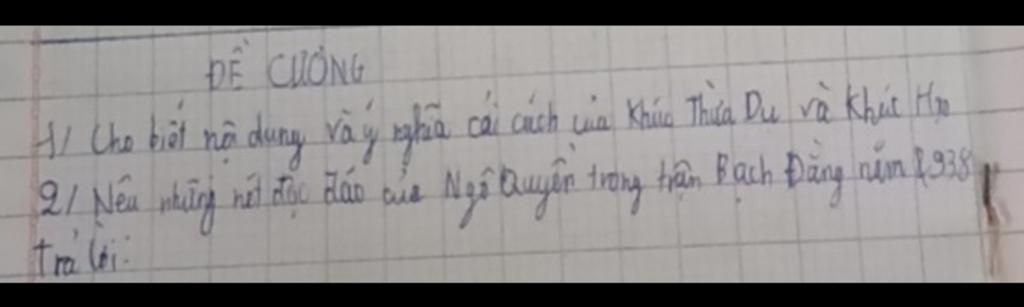 ĐỀ CƯƠNG
1/ Cho biết nộ dung và ý nghĩa cải cách của Khúc Thừa Dụ và Khúc Hạo
2/ Nêu những nét độc đáo của Ngô Quyền trong trận Bạch Đằng năm 938
Trả lời: